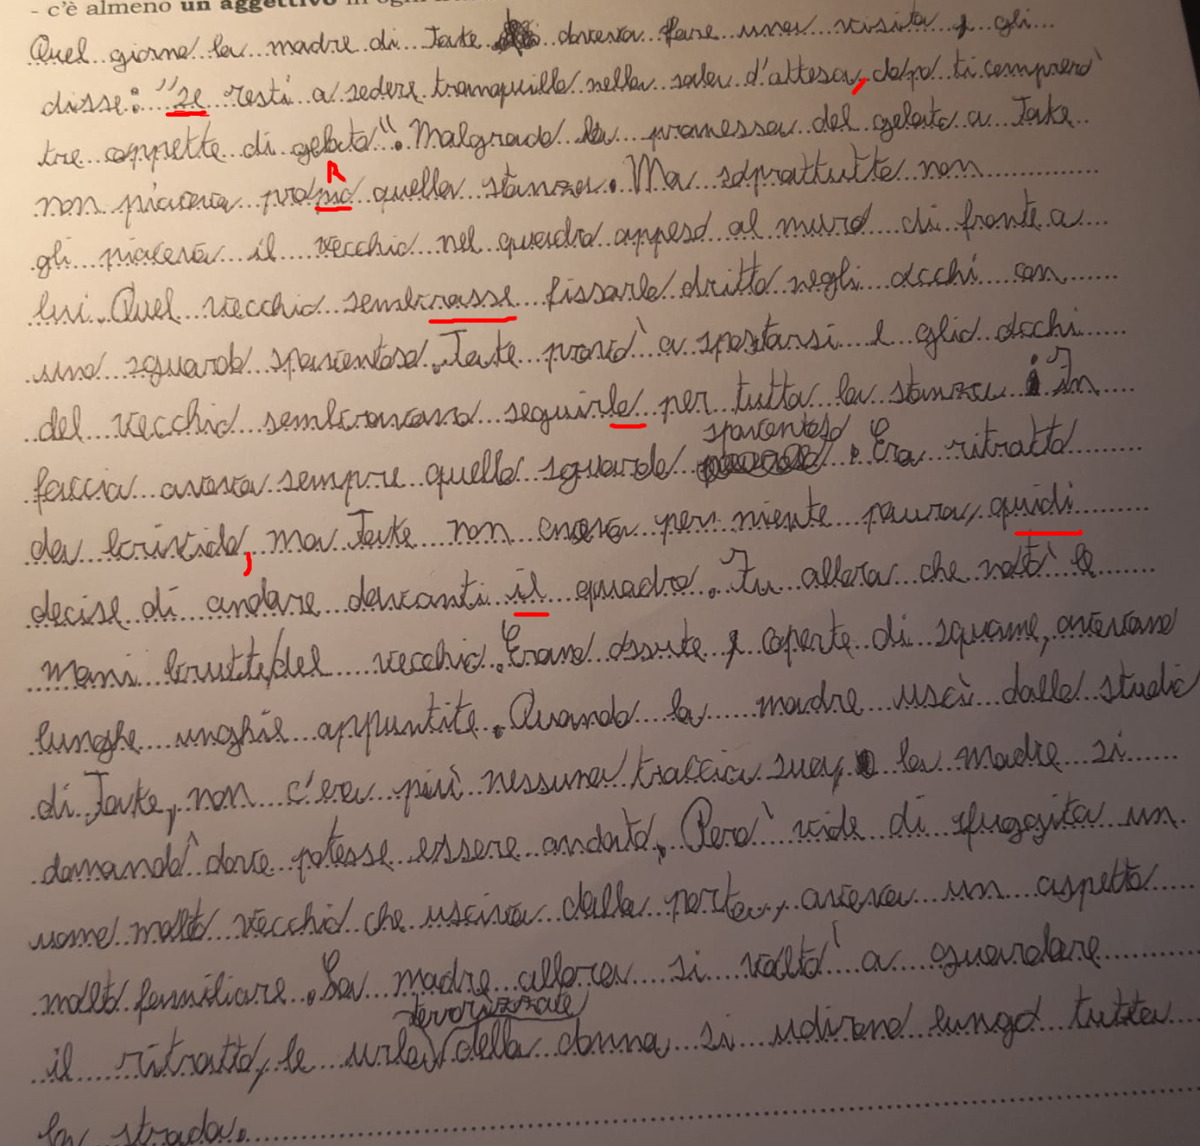 - c'è almeno un aggettivo in ogni
Quel giorno la madre di Jake doveva fare una visita e gli
disse: "se resti a sedere tranquillo nella sala d'attesa, dopo ti comprerò
tre coppette di gelato". Malgrado la promessa del gelato a Jake
R
non piaceva propio quella stanza. Ma soprattutto non
gli piaceva il vecchio nel quadro appeso al muro di fronte a
lui. Quel vecchio sembrasse fissarlo dritto negli occhi con
uno sguardo spaventoso. Jake provò a spostarsi e glio occhi
del vecchio sembravano seguirlo per tutta la stanza. In
spaventoso
faccia aveva sempre quello sguardo. Era ritratto
da brivido, ma Jake non aveva per niente paura, quidi
decise di andare davanti il quadro. Fu allora che notò le
mani brutte del vecchio. Erano ossute e coperte di squame, avevano
lunghe unghie appuntite. Quando la madre uscì dallo studio
di Jake, non c'era più nessuna traccia sua, e la madre si
domandò dove potesse essere andato. Però vide di sfuggita un
uomo molto vecchio che usciva dalla porta, aveva un aspetto
molto familiare. La madre allora si voltò a guardare
terorizzate
il ritratto, le urla della donna si udirono lungo tutta
la strada.